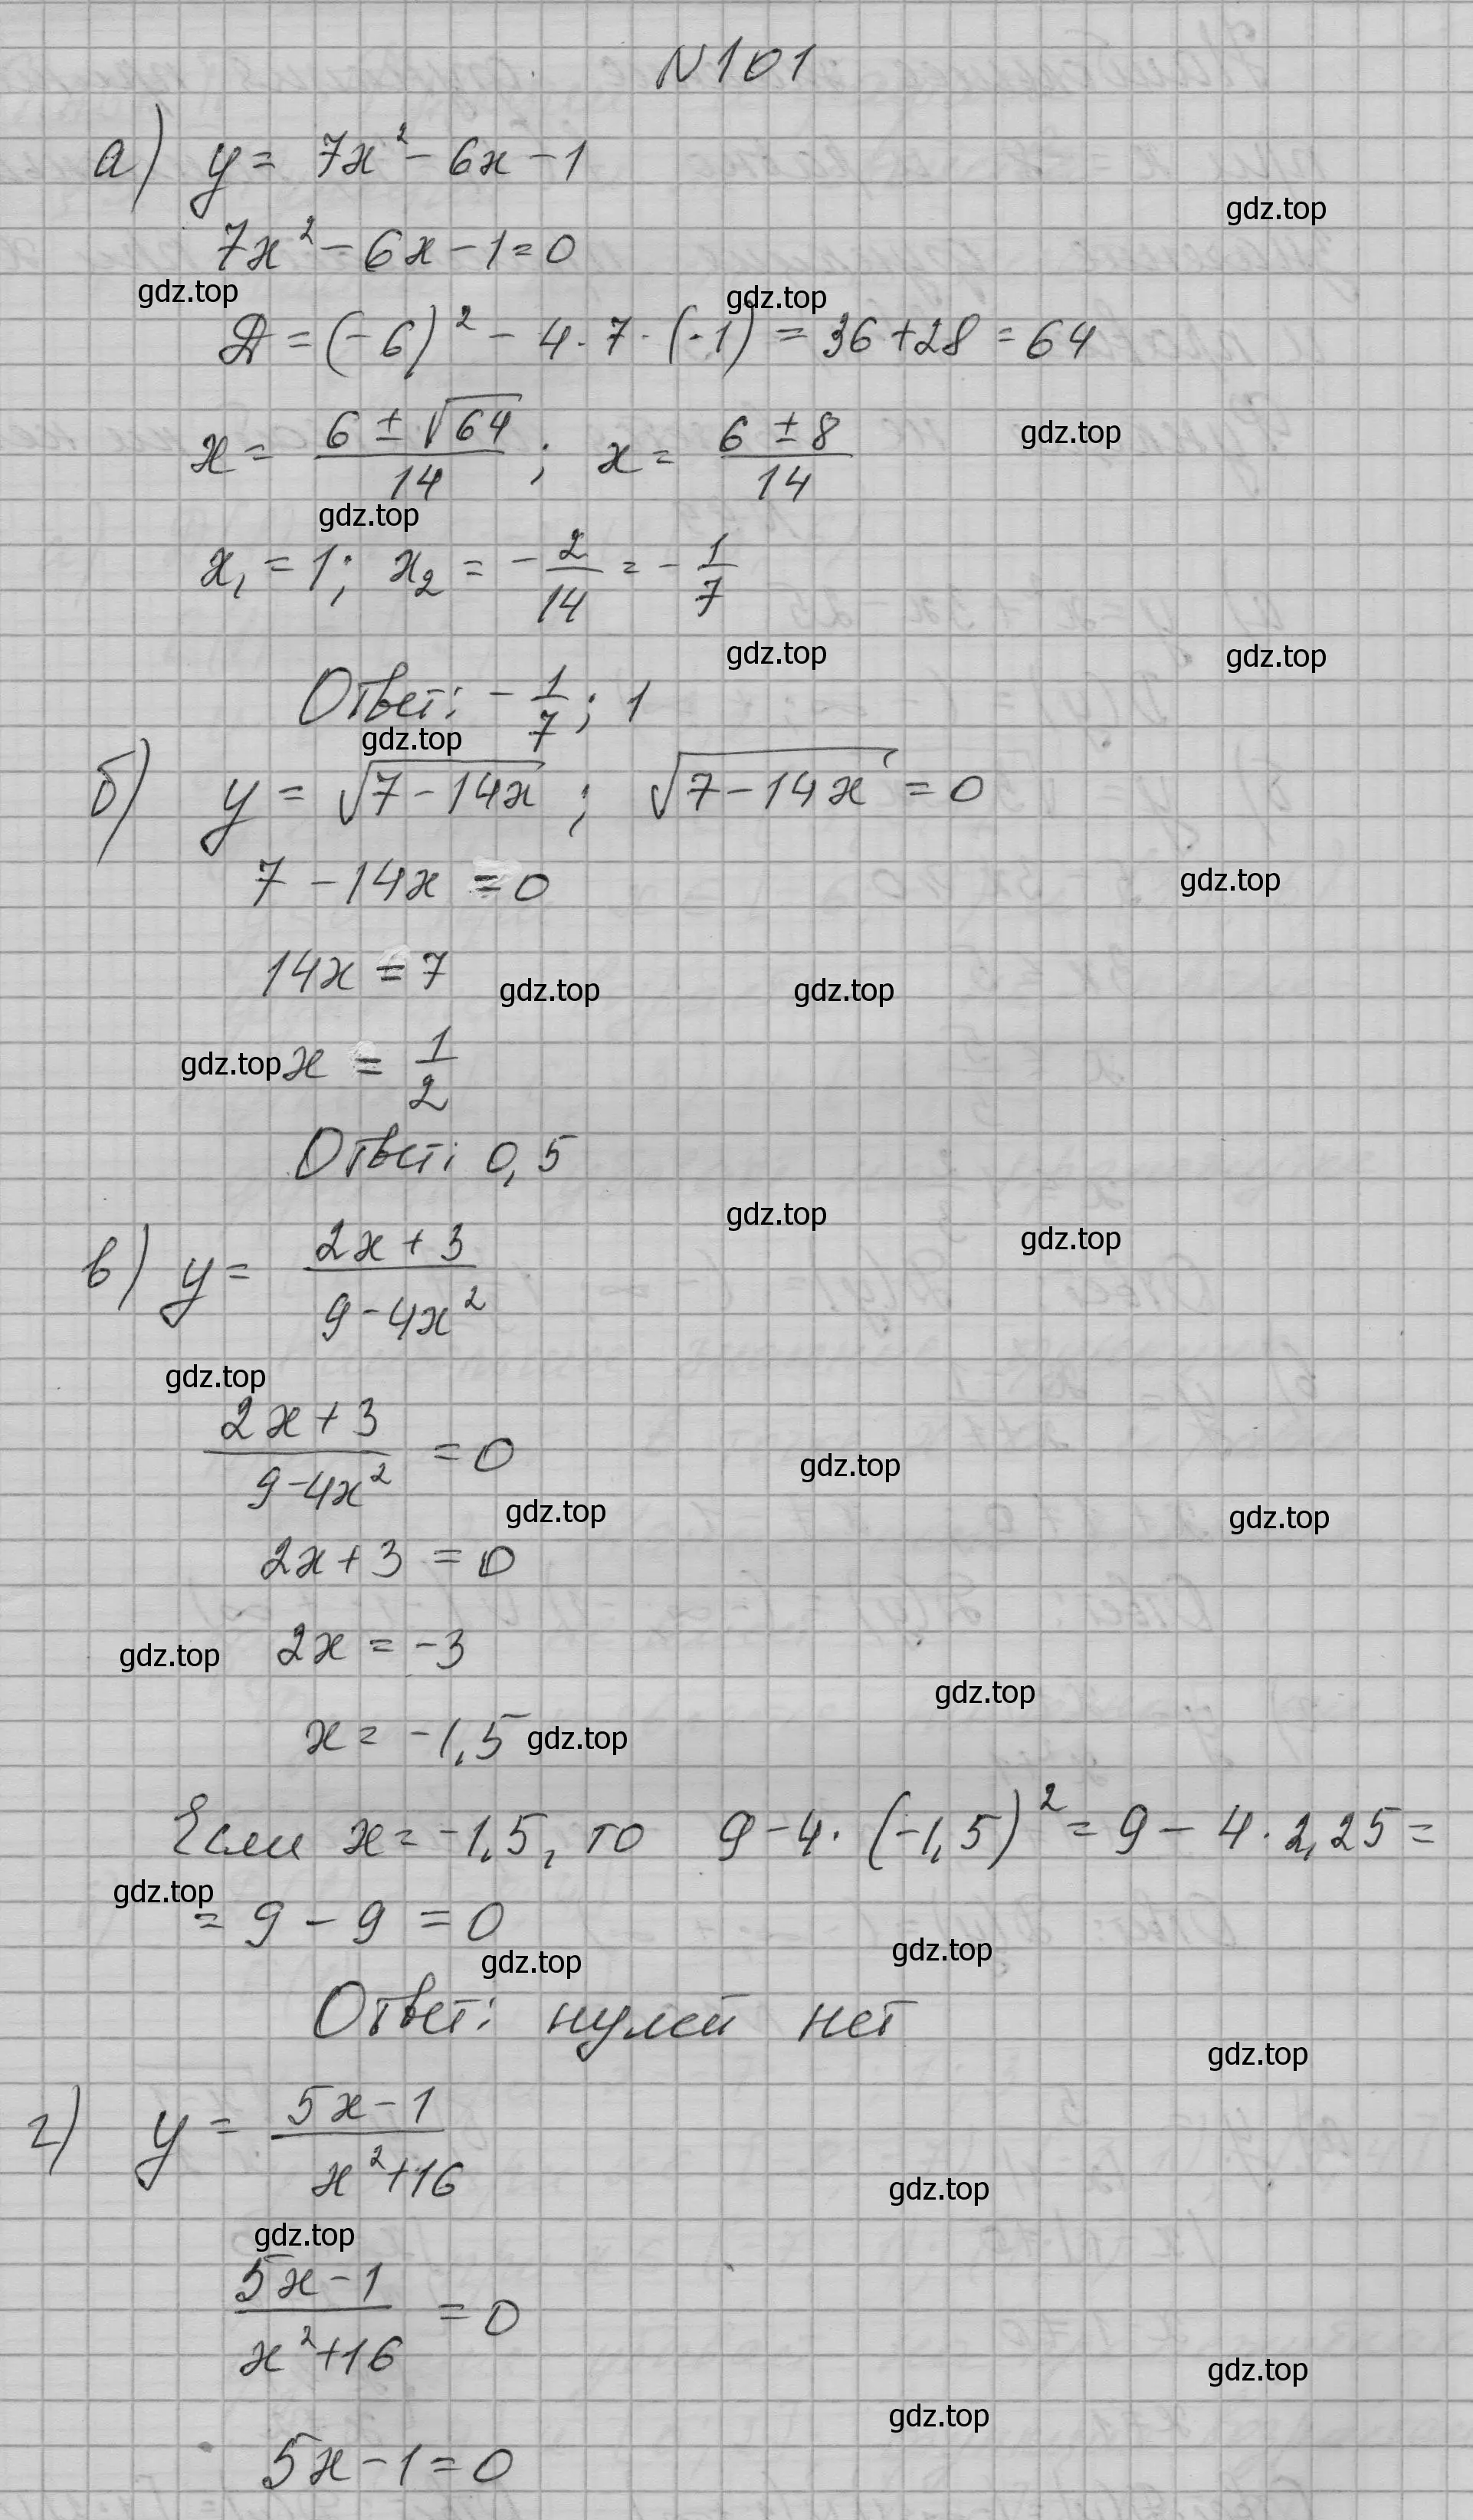 N101
а) y = 7x² - 6x - 1
gdz.top
7x² - 6x - 1 = 0
gdz.top gdz.top
Д = (-6)² - 4 · 7 · (-1) = 36 + 28 = 64
x = (6 ± √64)/14 ; x = (6 ± 8)/14 gdz.top
gdz.top
x₁ = 1; x₂ = -2/14 = -1/7
gdz.top gdz.top
Ответ: -1/7 ; 1
gdz.top
б) y = √(7 - 14x) ; √(7 - 14x) = 0
7 - 14x = 0 gdz.top
14x = 7 gdz.top gdz.top
gdz.top x = 1/2
Ответ: 0,5
gdz.top gdz.top
в) y = (2x + 3)/(9 - 4x²)
gdz.top
(2x + 3)/(9 - 4x²) = 0 gdz.top
gdz.top gdz.top
2x + 3 = 0
gdz.top 2x = -3
gdz.top
x = -1,5 gdz.top
Если x = -1,5, то 9 - 4 · (-1,5)² = 9 - 4 · 2,25 =
gdz.top
= 9 - 9 = 0
gdz.top gdz.top
Ответ: нулей нет
gdz.top
г) y = (5x - 1)/(x² + 16)
gdz.top
gdz.top
(5x - 1)/(x² + 16) = 0
gdz.top
gdz.top
5x - 1 = 0